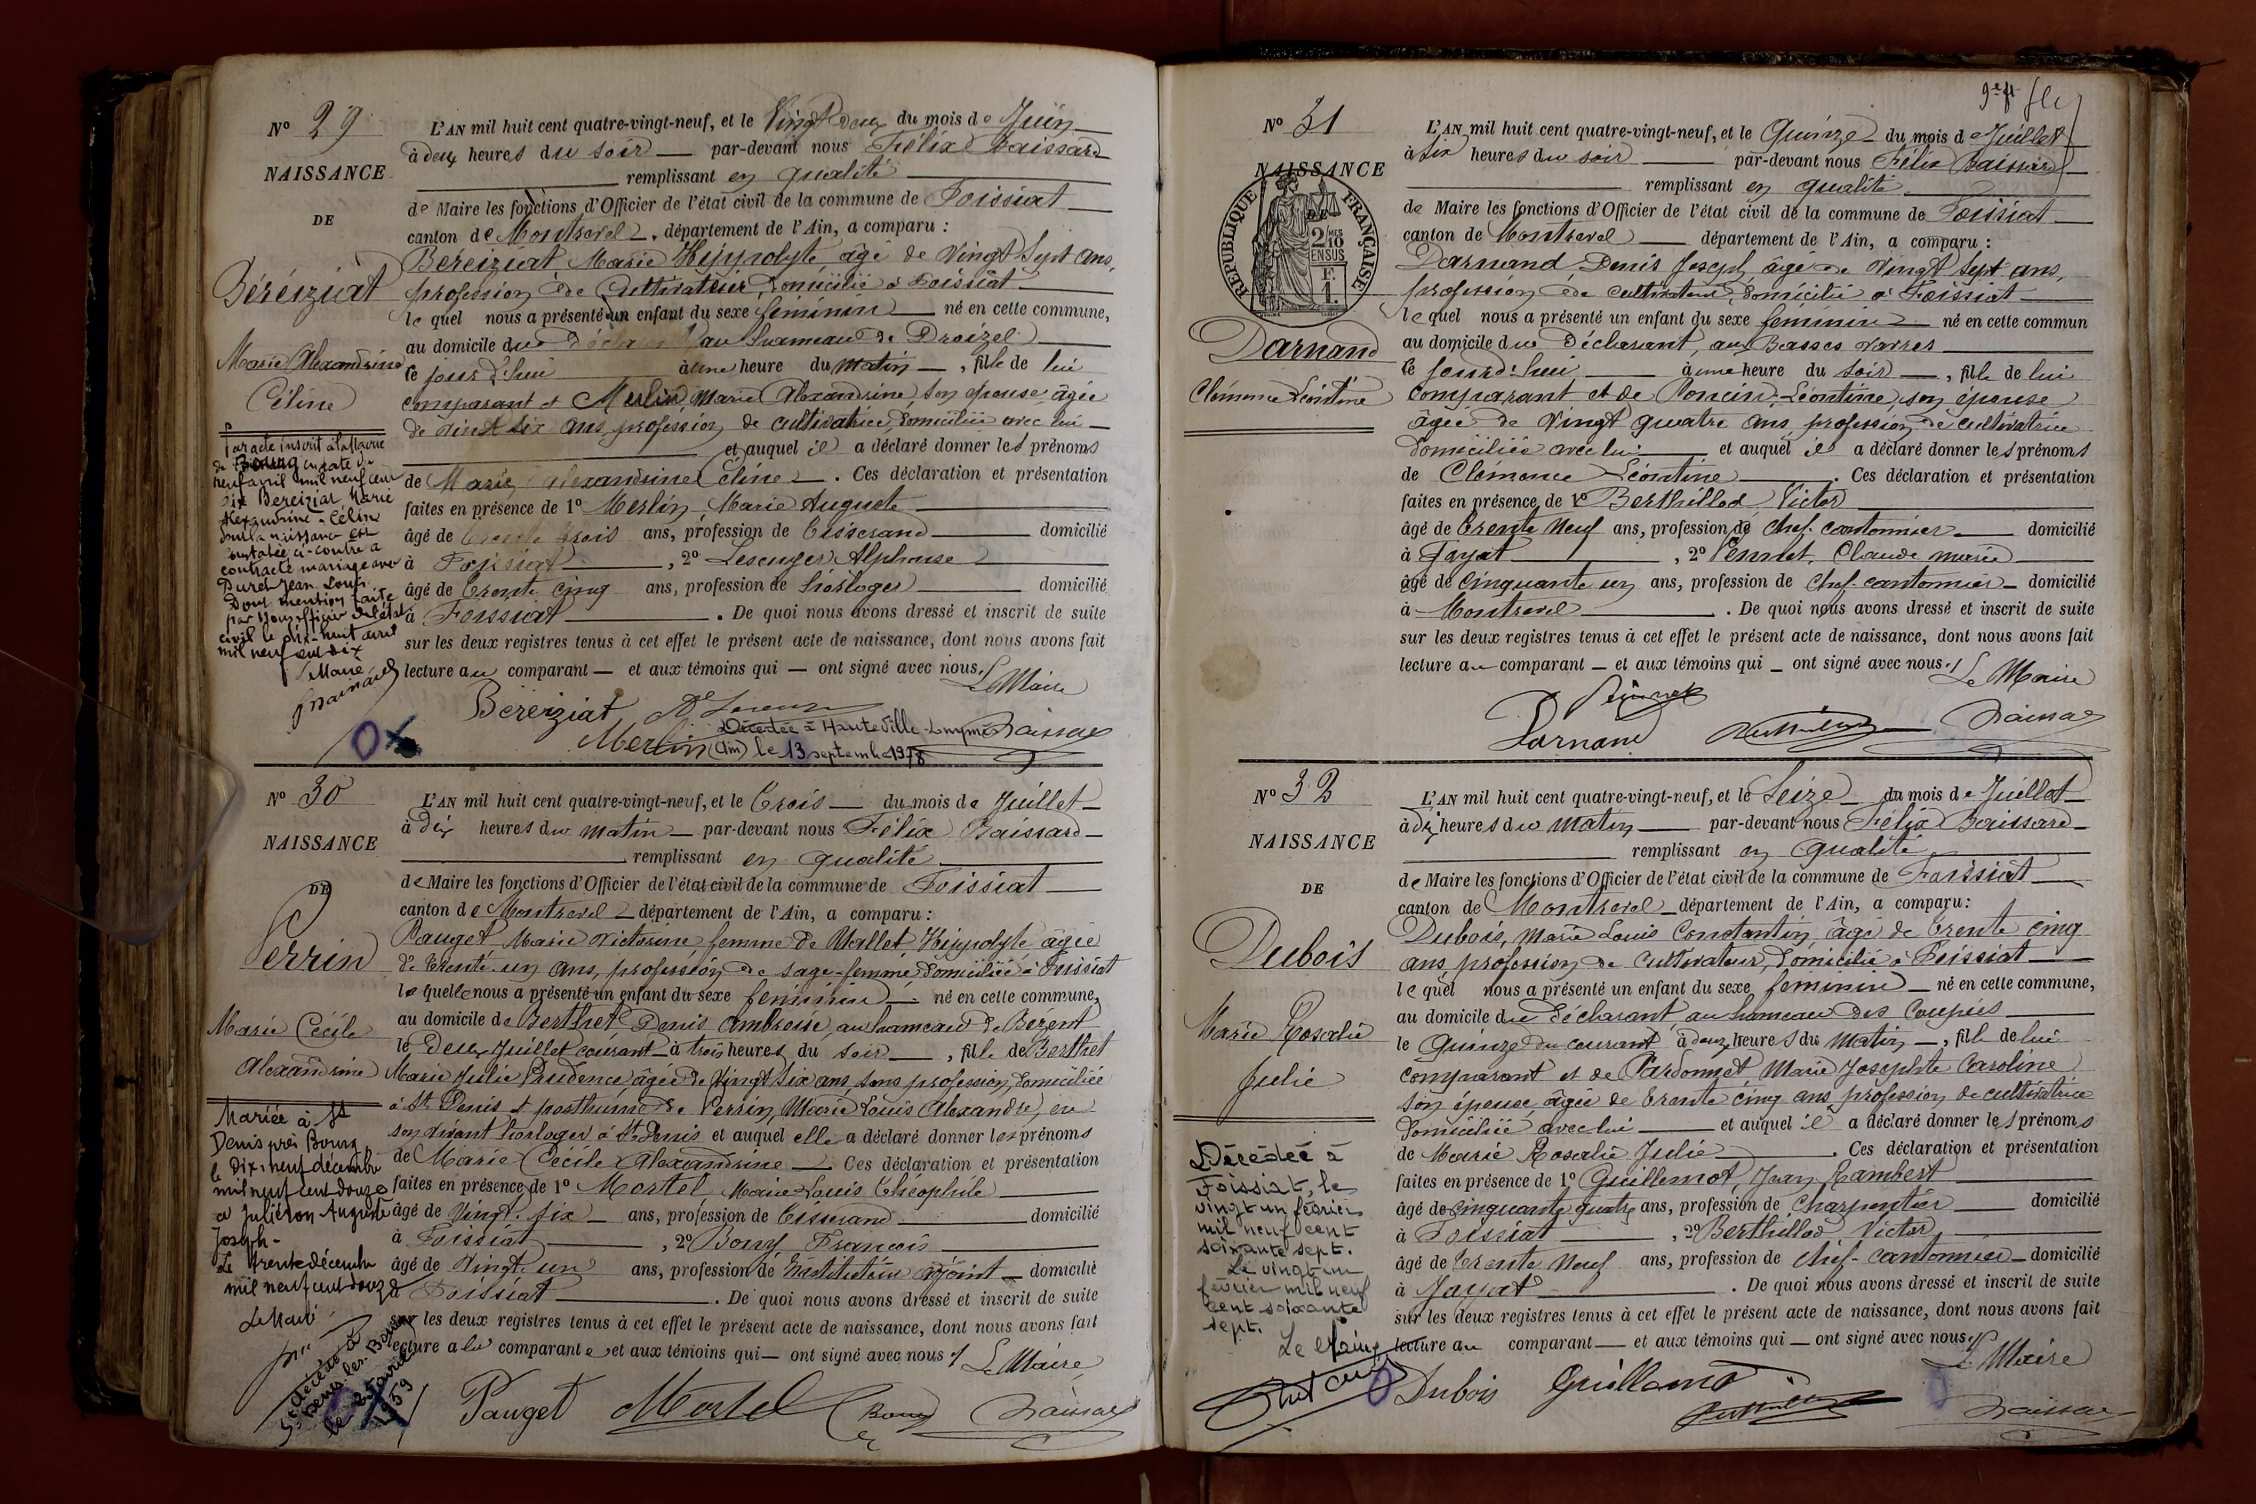 Nº 29
NAISSANCE
DE
Béréiziat
Marie Alexandrine
Céline
Par acte inscrit à la Mairie
de Bourg en date du
neuf avril mil neuf cent
dix Béréiziat Marie
Alexandrine-Céline
dont la naissance est
constatée ci-contre a
contracté mariage avec
Duret Jean Louis
Dont mention faite
par nous officier de l'état
civil le dix-huit avril
mil neuf cent dix
Le Maire
L'AN mil huit cent quatre-vingt-neuf, et le Vingt deux du mois de Juin
à deux heures du soir par-devant nous Félix Baissard
remplissant en qualité
de Maire les fonctions d'Officier de l'état civil de la commune de Foissiat
canton de Montrevel, département de l'Ain, a comparu :
Béréiziat Marie Hippolyte âgé de Vingt Sept ans,
profession de Cultivateur, domicilié à Foissiat
le quel nous a présenté un enfant du sexe féminin né en cette commune,
au domicile du décla au hameau de Broizel
le jour d'hui à une heure du matin, fille de lui
comparant et Merlin Marie Alexandrine son épouse âgée
de vingt six ans, profession de cultivatrice, domiciliée avec lui
et auquel il a déclaré donner les prénoms
de Marie Alexandrine Céline. Ces déclaration et présentation
faites en présence de 1º Merlin Marie Auguste
âgé de trente trois ans, profession de Tisserand domicilié
à Foissiat, 2º Alphonse
âgé de trente cinq ans, profession de horloger domicilié
à Foissiat. De quoi nous avons dressé et inscrit de suite
sur les deux registres tenus à cet effet le présent acte de naissance, dont nous avons fait
lecture au comparant et aux témoins qui ont signé avec nous.
Le Maire
Béréiziat
Merlin
Baissard
Décédée à Hauteville-Lompnes
(Ain) le 13 septembre 1978
Nº 30
NAISSANCE
DE
Perrin
Marie Cécile
Alexandrine
Mariée à St
Denis près Bourg
le dix-neuf décembre
mil neuf cent douze
à Juliéron Auguste
Joseph-
Le trente décembre
mil neuf cent douze
Le Maire
Décédée à
St Denis-les-Bourg
le 25 avril
1959
L'AN mil huit cent quatre-vingt-neuf, et le Trois du mois de Juillet
à dix heures du matin par-devant nous Félix Baissard
remplissant en qualité
de Maire les fonctions d'Officier de l'état civil de la commune de Foissiat
canton de Montrevel département de l'Ain, a comparu :
Pauget Marie Victorine femme de Mallet Hippolyte âgée
de trente-un ans, profession de sage-femme, domiciliée à Foissiat
la quelle nous a présenté un enfant du sexe féminin né en cette commune,
au domicile de Berthet Denis Ambroise, au hameau de Bezent
le deux Juillet courant à trois heures du soir, fille de Berthet
Marie Julie Prudence âgée de Vingt six ans, sans profession, domiciliée
à St Denis et posthume de Perrin Marie Louis Alexandre, en
son vivant horloger à St Denis et auquel elle a déclaré donner les prénoms
de Marie Cécile Alexandrine. Ces déclaration et présentation
faites en présence de 1º Mortel, Marie-Louis Théophile
âgé de Vingt-six ans, profession de Tisserand domicilié
à Foissiat, 2º Bouy François
âgé de Vingt-un ans, profession de Instituteur adjoint domicilié
à Foissiat. De quoi nous avons dressé et inscrit de suite
sur les deux registres tenus à cet effet le présent acte de naissance, dont nous avons fait
lecture à la comparante et aux témoins qui ont signé avec nous
Le Maire
Pauget Mortel Bouy Baissard
Nº 31
NAISSANCE
RÉPUBLIQUE FRANÇAISE
2/10 MES
EN SUS
1 F.
Darnand
Clémence Léontine
L'AN mil huit cent quatre-vingt-neuf, et le Quinze du mois de Juillet
à six heures du soir par-devant nous Félix Baissard
remplissant en qualité
de Maire les fonctions d'Officier de l'état civil de la commune de Foissiat
canton de Montrevel département de l'Ain, a comparu :
Darnand Denis Joseph, âgé de Vingt sept ans,
profession de cultivateur, domicilié à Foissiat
le quel nous a présenté un enfant du sexe féminin né en cette commun
au domicile du Déclarant, au Basses Varres
le jourd'hui à une heure du soir, fille de lui
comparant et de Poncin, Léontine, son épouse
âgée de Vingt quatre ans, profession de cultivatrice
domiciliée avec lui et auquel il a déclaré donner les prénoms
de Clémence Léontine. Ces déclaration et présentation
faites en présence de 1º Berthillod Victor
âgé de trente neuf ans, profession de chef-cantonnier domicilié
à Jayat, 2º Claude Marie
âgé de cinquante un ans, profession de chef-cantonnier domicilié
à Montrevel. De quoi nous avons dressé et inscrit de suite
sur les deux registres tenus à cet effet le présent acte de naissance, dont nous avons fait
lecture au comparant et aux témoins qui ont signé avec nous.
Le Maire
Darnand
Baissard
Nº 32
NAISSANCE
DE
Dubois
Marie Rosalie
Julie
Décédée à
Foissiat, le
vingt un février
mil neuf cent
soixante sept.
Le vingt un
février mil neuf
cent soixante
sept.
Le Maire
L'AN mil huit cent quatre-vingt-neuf, et le Seize du mois de Juillet
à dix heures du matin par-devant nous Félix Baissard
remplissant en qualité
de Maire les fonctions d'Officier de l'état civil de la commune de Foissiat
canton de Montrevel département de l'Ain, a comparu :
Dubois, Marie Louis Constantin, âgé de trente cinq
ans, profession de Cultivateur, domicilié à Foissiat
le quel nous a présenté un enfant du sexe féminin né en cette commune,
au domicile du déclarant, au hameau des Coupés
le Quinze du courant à douze heures du matin, fille de lui
comparant et de Pardonnet Marie Josephte Caroline
son épouse, âgée de trente cinq ans profession de cultivatrice
domiciliée avec lui et auquel il a déclaré donner les prénoms
de Marie Rosalie Julie. Ces déclaration et présentation
faites en présence de 1º Guillemot, Jean Rambert
âgé de cinquante quatre ans, profession de Charpentier domicilié
à Foissiat, 2º Berthillod Victor
âgé de trente neuf ans, profession de chef-cantonnier domicilié
à Jayat. De quoi nous avons dressé et inscrit de suite
sur les deux registres tenus à cet effet le présent acte de naissance, dont nous avons fait
lecture au comparant et aux témoins qui ont signé avec nous.
Le Maire
Dubois Guillemot
Baissard